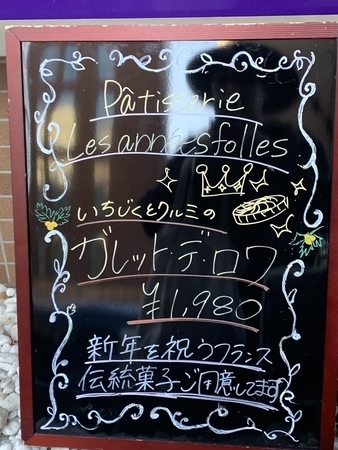 Pâtisserie
Les années folles
いちじくとクルミの
ガレット・デ・ロワ
¥1,980
新年を祝うフランス
伝統菓子ご用意してます